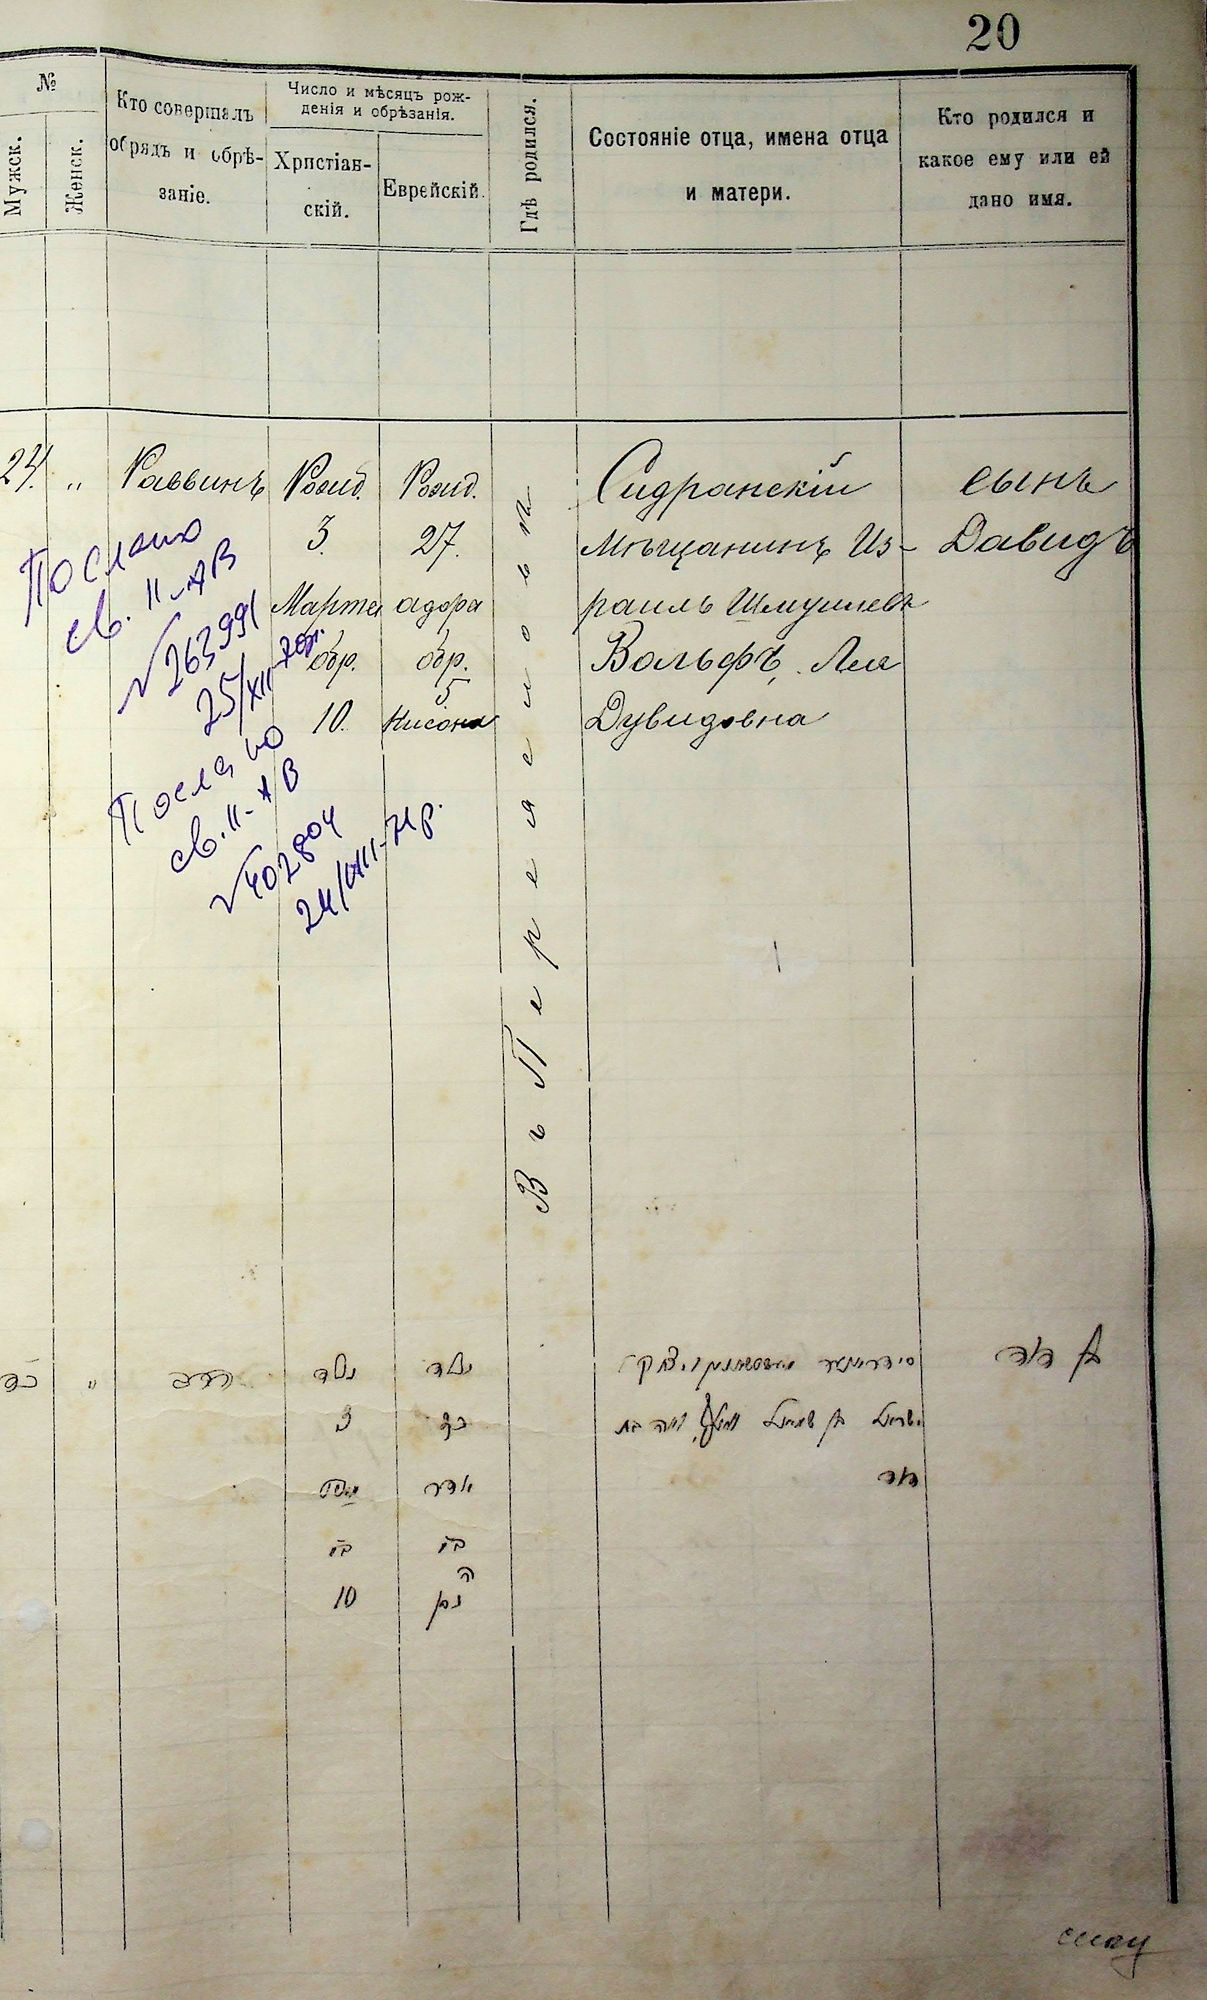 20
№
Мужск.
Женск.
Кто совершалъ
обрядъ и обрѣ-
заніе.
Число и мѣсяцъ рож-
денія и обрѣзанія.
Христіан-
скій.
Еврейскій.
Гдѣ родился.
Состояніе отца, имена отца
и матери.
Кто родился и
какое ему или ей
дано имя.
24. „ Раввинъ
Рожд.
3.
Марта
обр.
10.
Рожд.
27.
адара
обр.
5
Нисона
Въ Переяслов
Сидранскій
Мѣщанинъ Из-
раиль Шмуилевъ
Вольфъ, Лея
Дувидовна
сынъ
Давидъ
Послано
св. II-АВ
№263991
25/XII-70р.
Послано
св. II-АВ
№402804
24/VIII-71р.
כד „
נולד
3
10
נולד
כז
אדר
ה
ניסן
ישראל בן שמואל
לאה בת
דוד
בן דוד